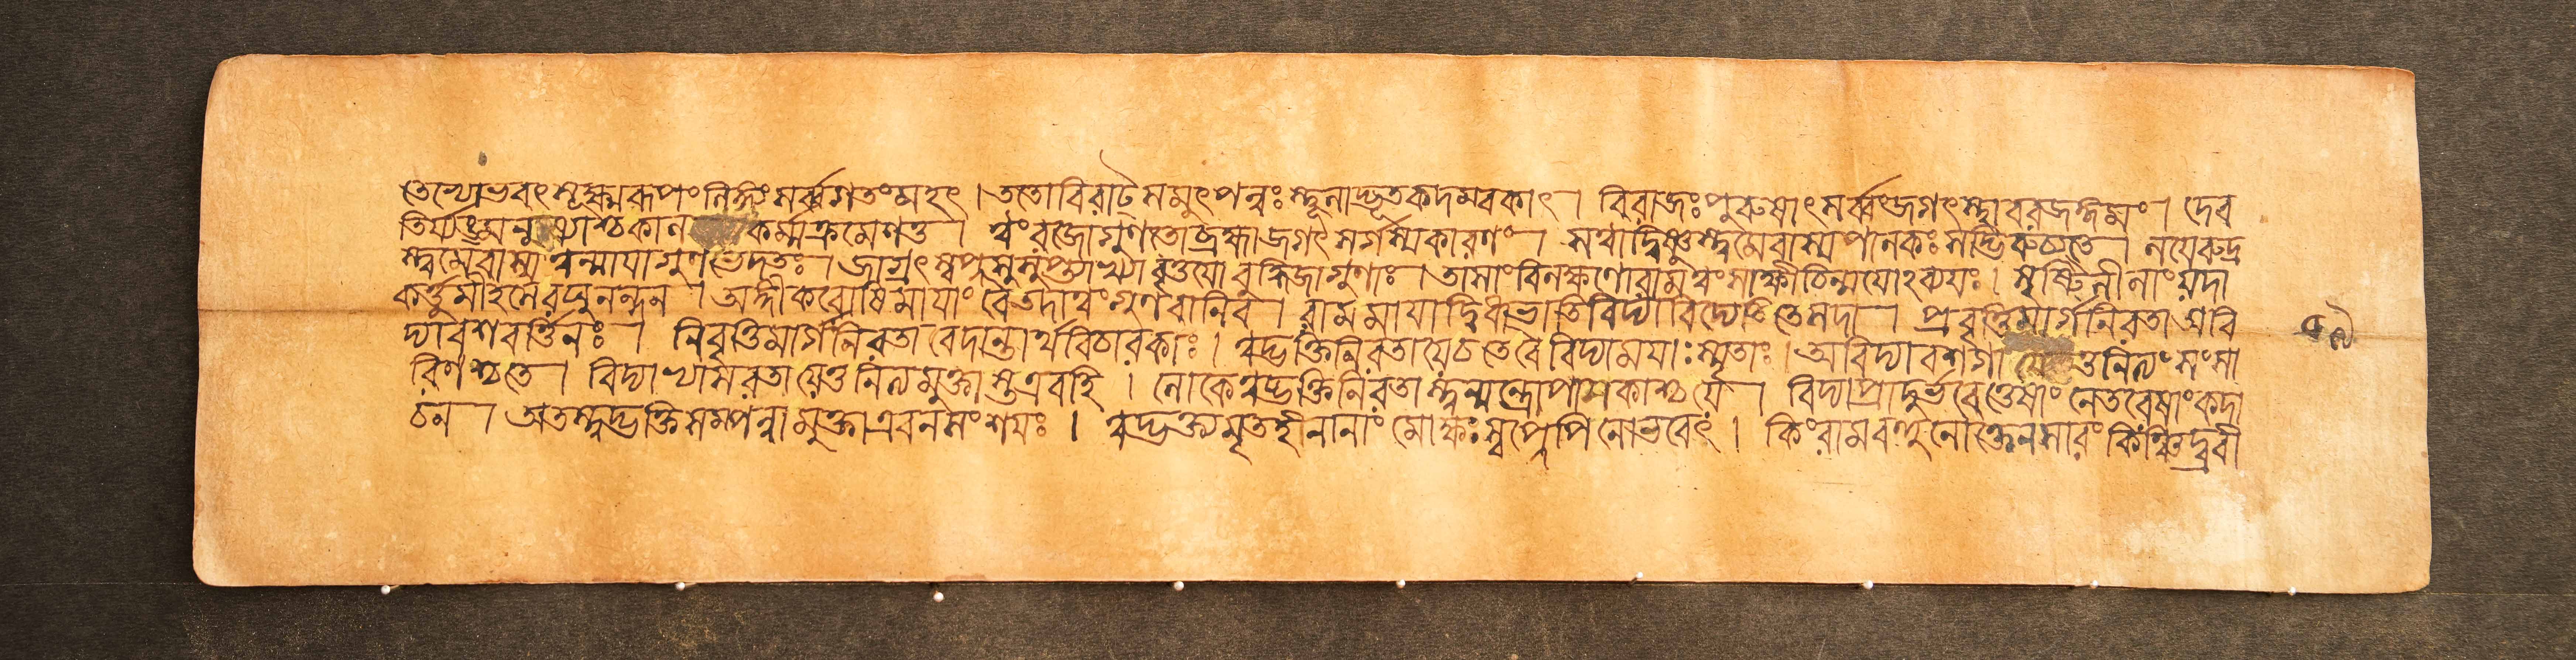 তেভ্যোভবৎ সূক্ষ্মরূপং লিঙ্গং সর্ব্বগতং মহৎ । ততো বিরাট্ সমুৎপন্নঃ স্থূলাদ্ভূতকদম্বকাৎ । বিরাজঃ পুরুষাৎ সর্ব্বংজগৎ স্থাবরজঙ্গমং । দেব
তির্য্যঙ্মনুষ্যাশ্চকাল কর্ম্মক্রমেণতু । ত্বং রজোগুণতো ব্রহ্মা জগৎ সর্গস্যকারণং । সত্বাদ্বিষ্ণুস্ত্বমেবাস্য পালকঃ সদ্ভিরুচ্যতে । লয়েরুদ্র
স্ত্বমেবাস্য ত্বন্মায়াগুণভেদতঃ । জাগ্রৎস্বপ্নসুষুপ্ত্যাখ্যা বৃত্তয়ো বুদ্ধিজাগুণাঃ । তাসাং বিলক্ষণোরাম ত্বং সাক্ষী চিন্ময়োঽব্যয়ঃ । সৃষ্টিলীলাং যদা
কর্ত্তুমীহসেরঘুনন্দন । অঙ্গীকরোষি মায়াং বৈ তদাত্বং গুণবানিব । রাম মায়াদ্বিধাভাতি বিদ্যাবিদ্যেতি তেসদা । প্রবৃত্তিমার্গনিরতা অবি
দ্যাবশবর্ত্তিনঃ । নিবৃত্তিমার্গনিরতা বেদান্তার্থবিচারকাঃ । ত্বদ্ভক্তিনিরতায়েচ তেবৈ বিদ্যাময়াঃ স্মৃতাঃ । অবিদ্যাবশগা যে তুনিত্যং সংসা
রিণশ্চতে । বিদ্যাভ্যাসরতায়েতু নিত্যমুক্তাস্তএবহি । লোকেত্বদ্ভক্তিনিরতা স্ত্বন্মন্ত্রোপাসকাশ্চ যে । বিদ্যাপ্রাদুর্ভবেত্তেষাং নেতরেষাংকদা
চন । অতস্ত্বদ্ভক্তিসম্পন্না মুক্তাএবনসংশয়ঃ । ত্বদ্ভক্ত্যমৃতহীনানাং মোক্ষঃ স্বপ্নেপিনোভবেৎ । কিং রামবহুনোক্তেন সারং কিঞ্চিদ্ব্রবী